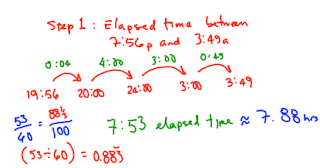 Step 1 : Elapsed time between
7:56p and 3:49a
0:04 4:00 3:00 0:49
19:56 20:00 24:00 3:00 3:49
53/60 = 88⅓/100
7:53 elapsed time ≈ 7.88 hrs
(53÷60) = 0.883̅